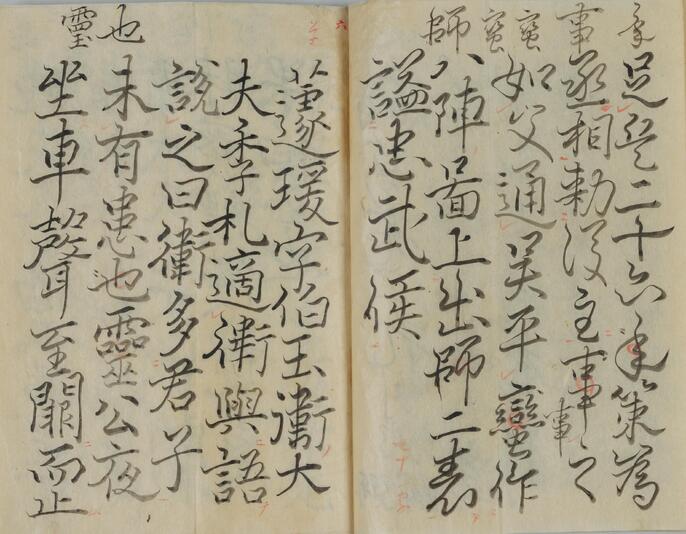 年
事
蠻
蠻
師
二十六年策為
丞相勅後主事之
事
如父通吳平蠻作
八陣圖上出師二表
諡忠武侯
也
靈
蘧瑗字伯玉衛大
夫季札適衛與語
說之曰衛多君子
未有患也靈公夜
坐車聲至闕而止